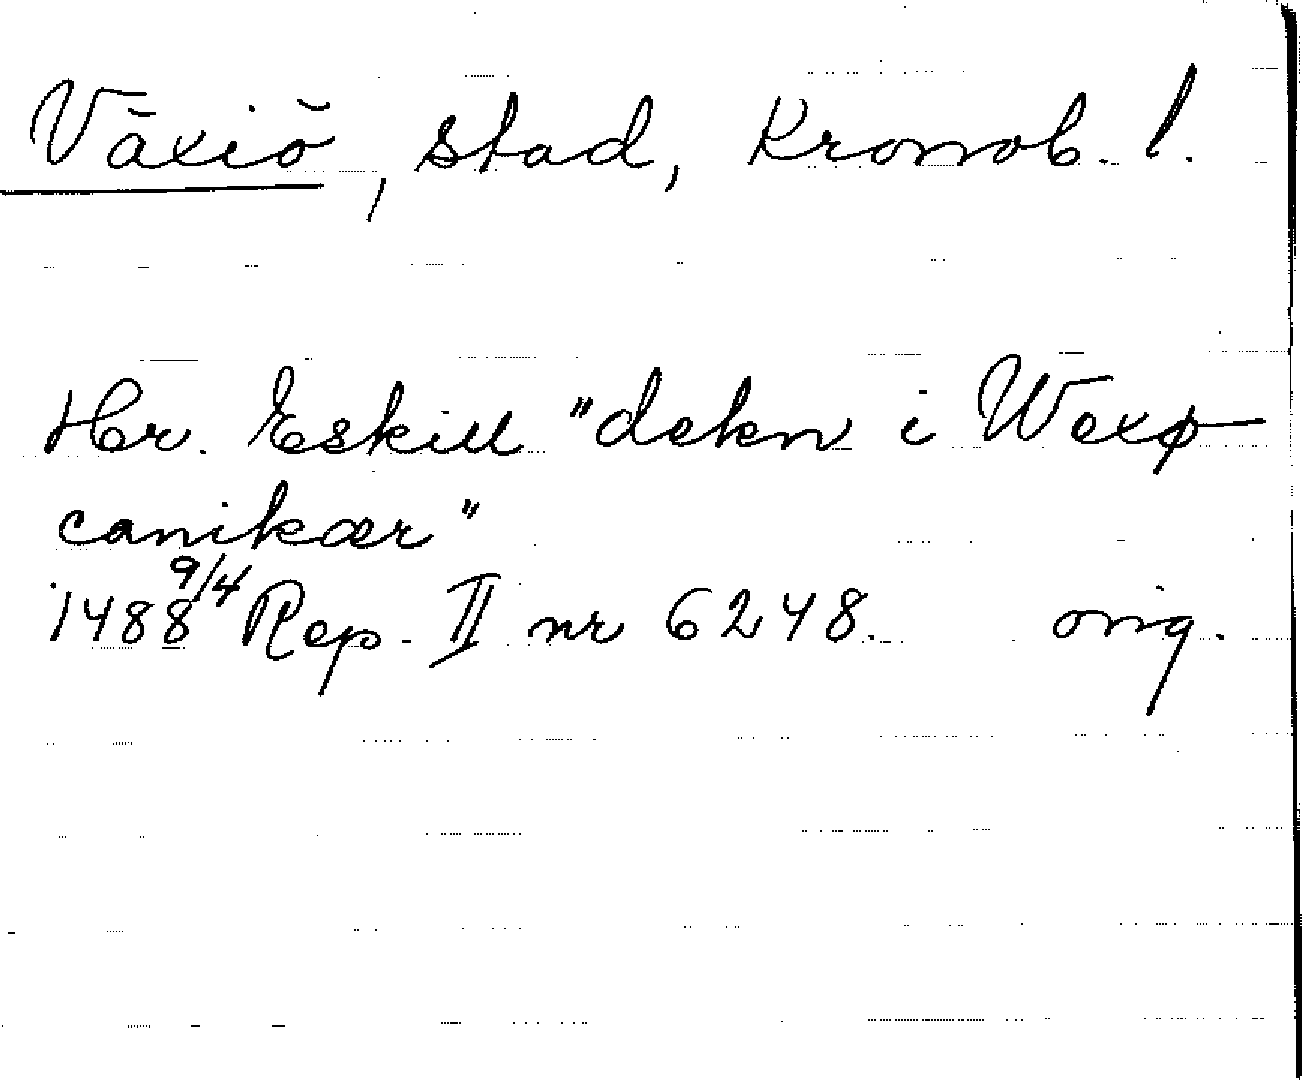 Växiö, stad, Kronob. l.
Hr. Eskill "dekn i Wexø
canikær"
1488 9/4 Rep. II nr 6248. orig.